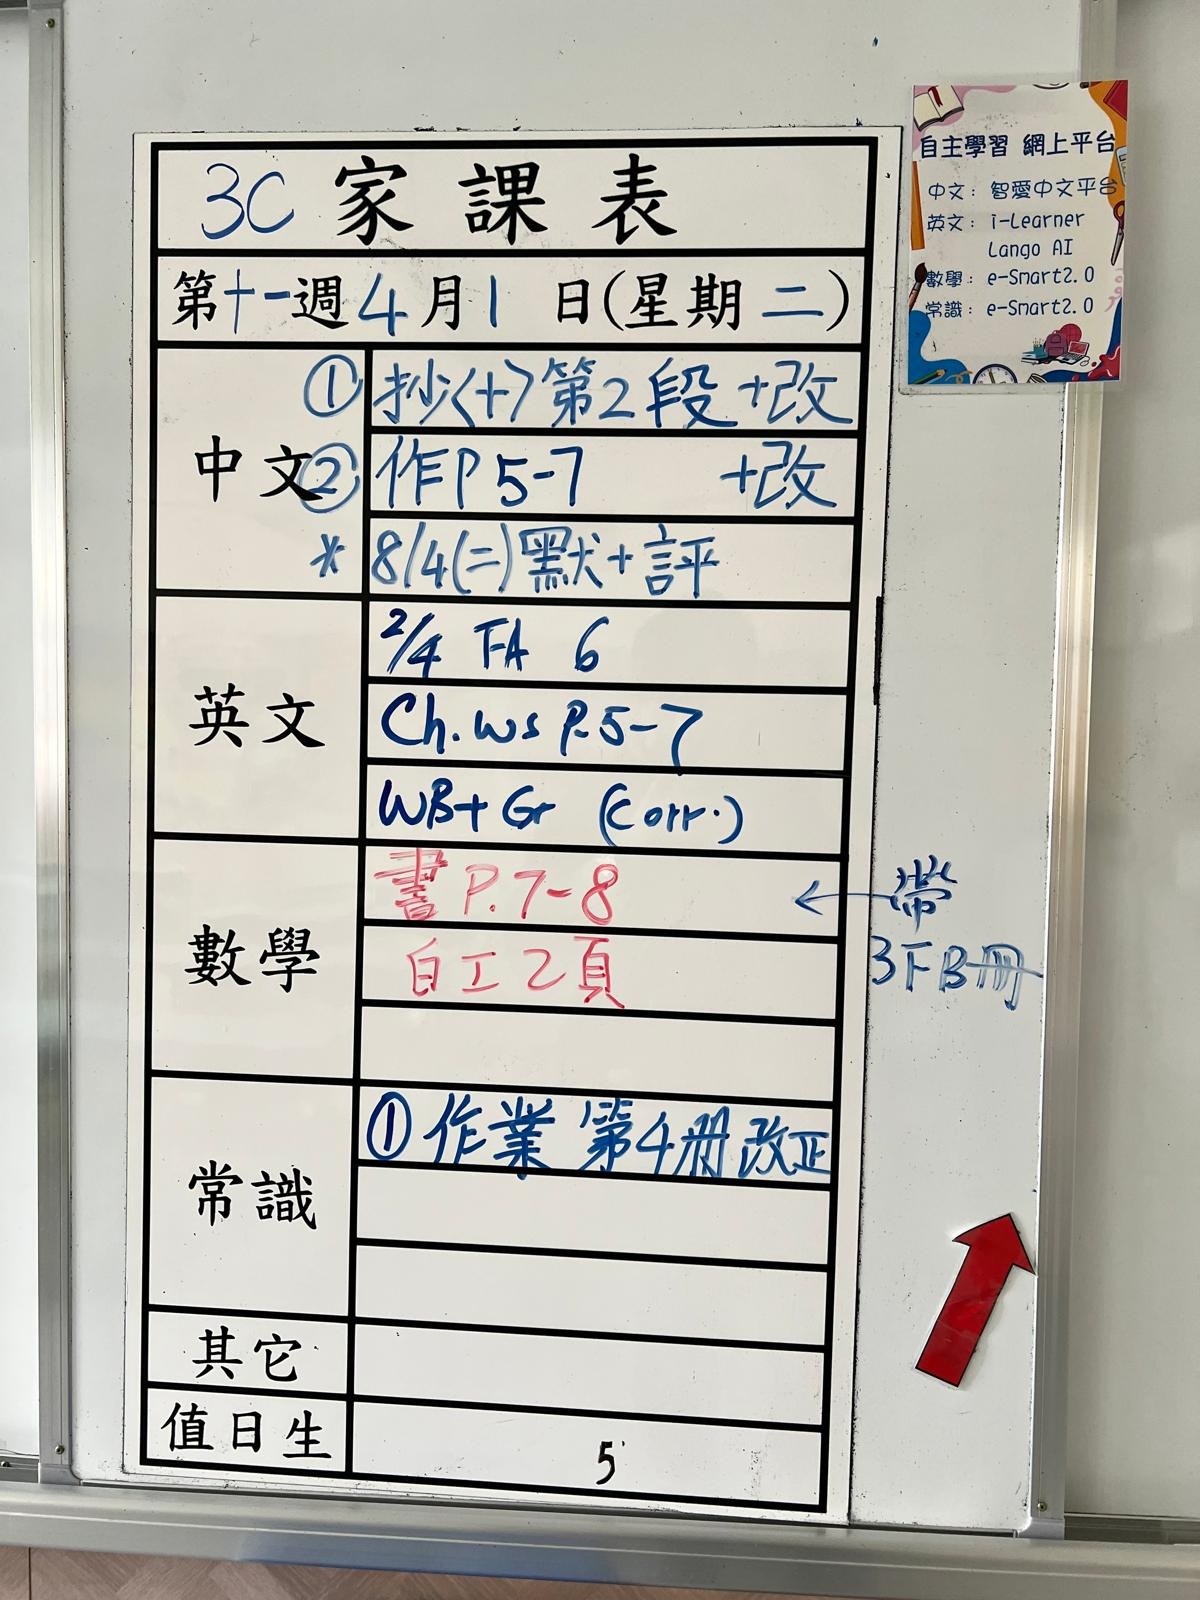 3C 家課表
第十一週 4月1日(星期二)
中文
① 抄〈十〉第2段 +改
② 作P 5-7 +改
* 8/4(二)默+評
英文
2/4 FA 6
Ch. WS P.5-7
WB+Gr (corr.)
數學
書 P.7-8
白工2頁
← 帶
3FB冊
常識
① 作業 第4冊 改正
其它
值日生
5
自主學習 網上平台
中文：智愛中文平台
英文：i-Learner
Lango AI
數學：e-Smart2.0
常識：e-Smart2.0